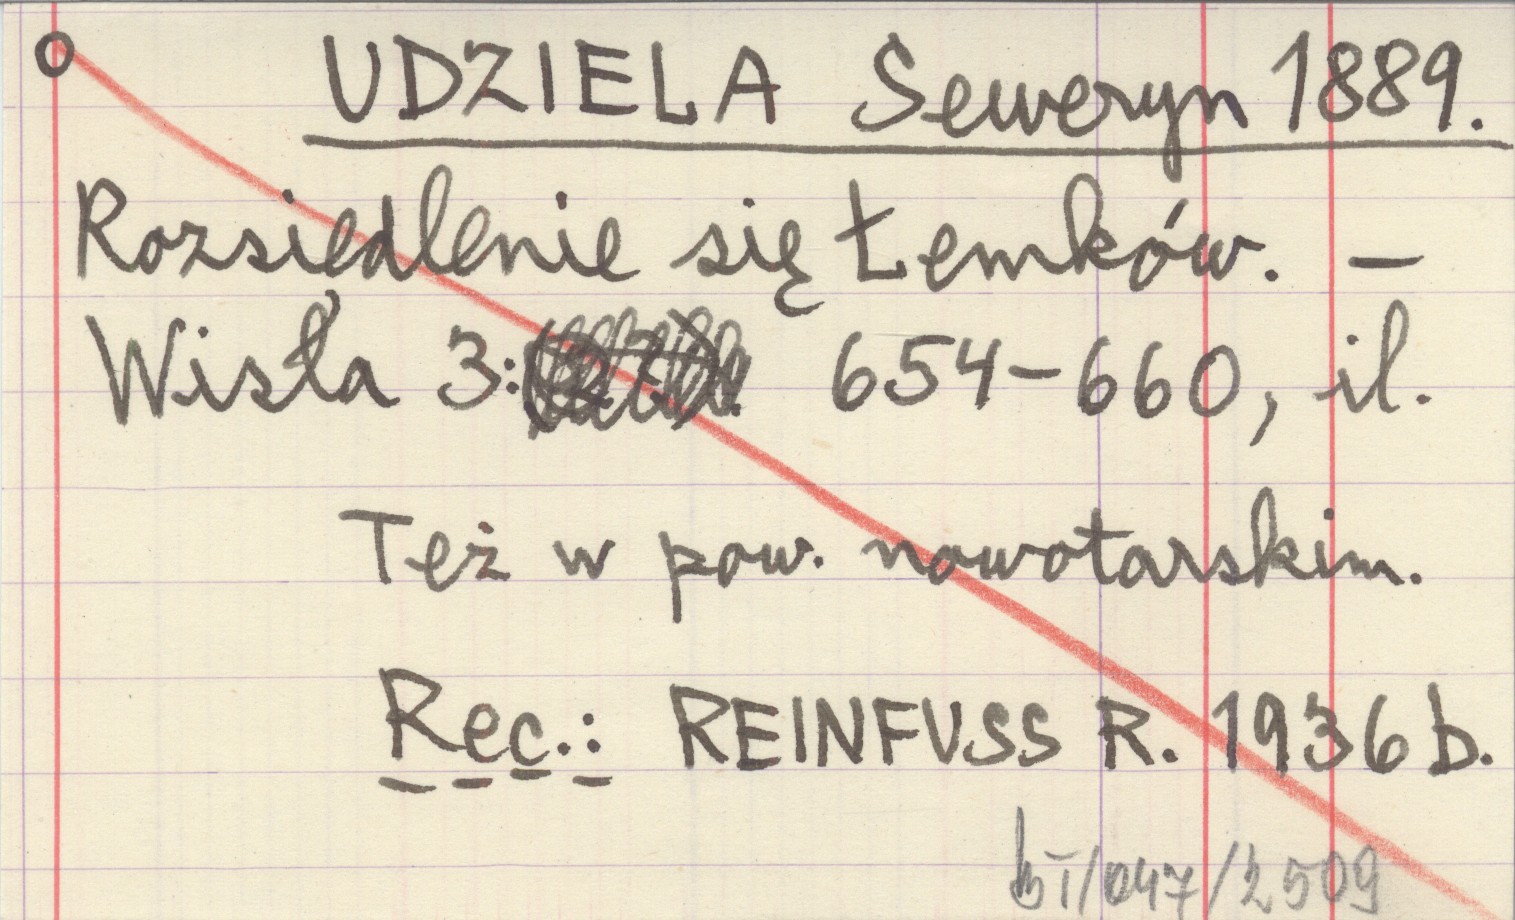 UDZIELA Seweryn 1889.
Rozsiedlenie się Łemków. —
Wisła 3: 654-660, il.
Też w pow. nowotarskim.
Rec.: REINFUSS R. 1936 b.
bT/047/2509